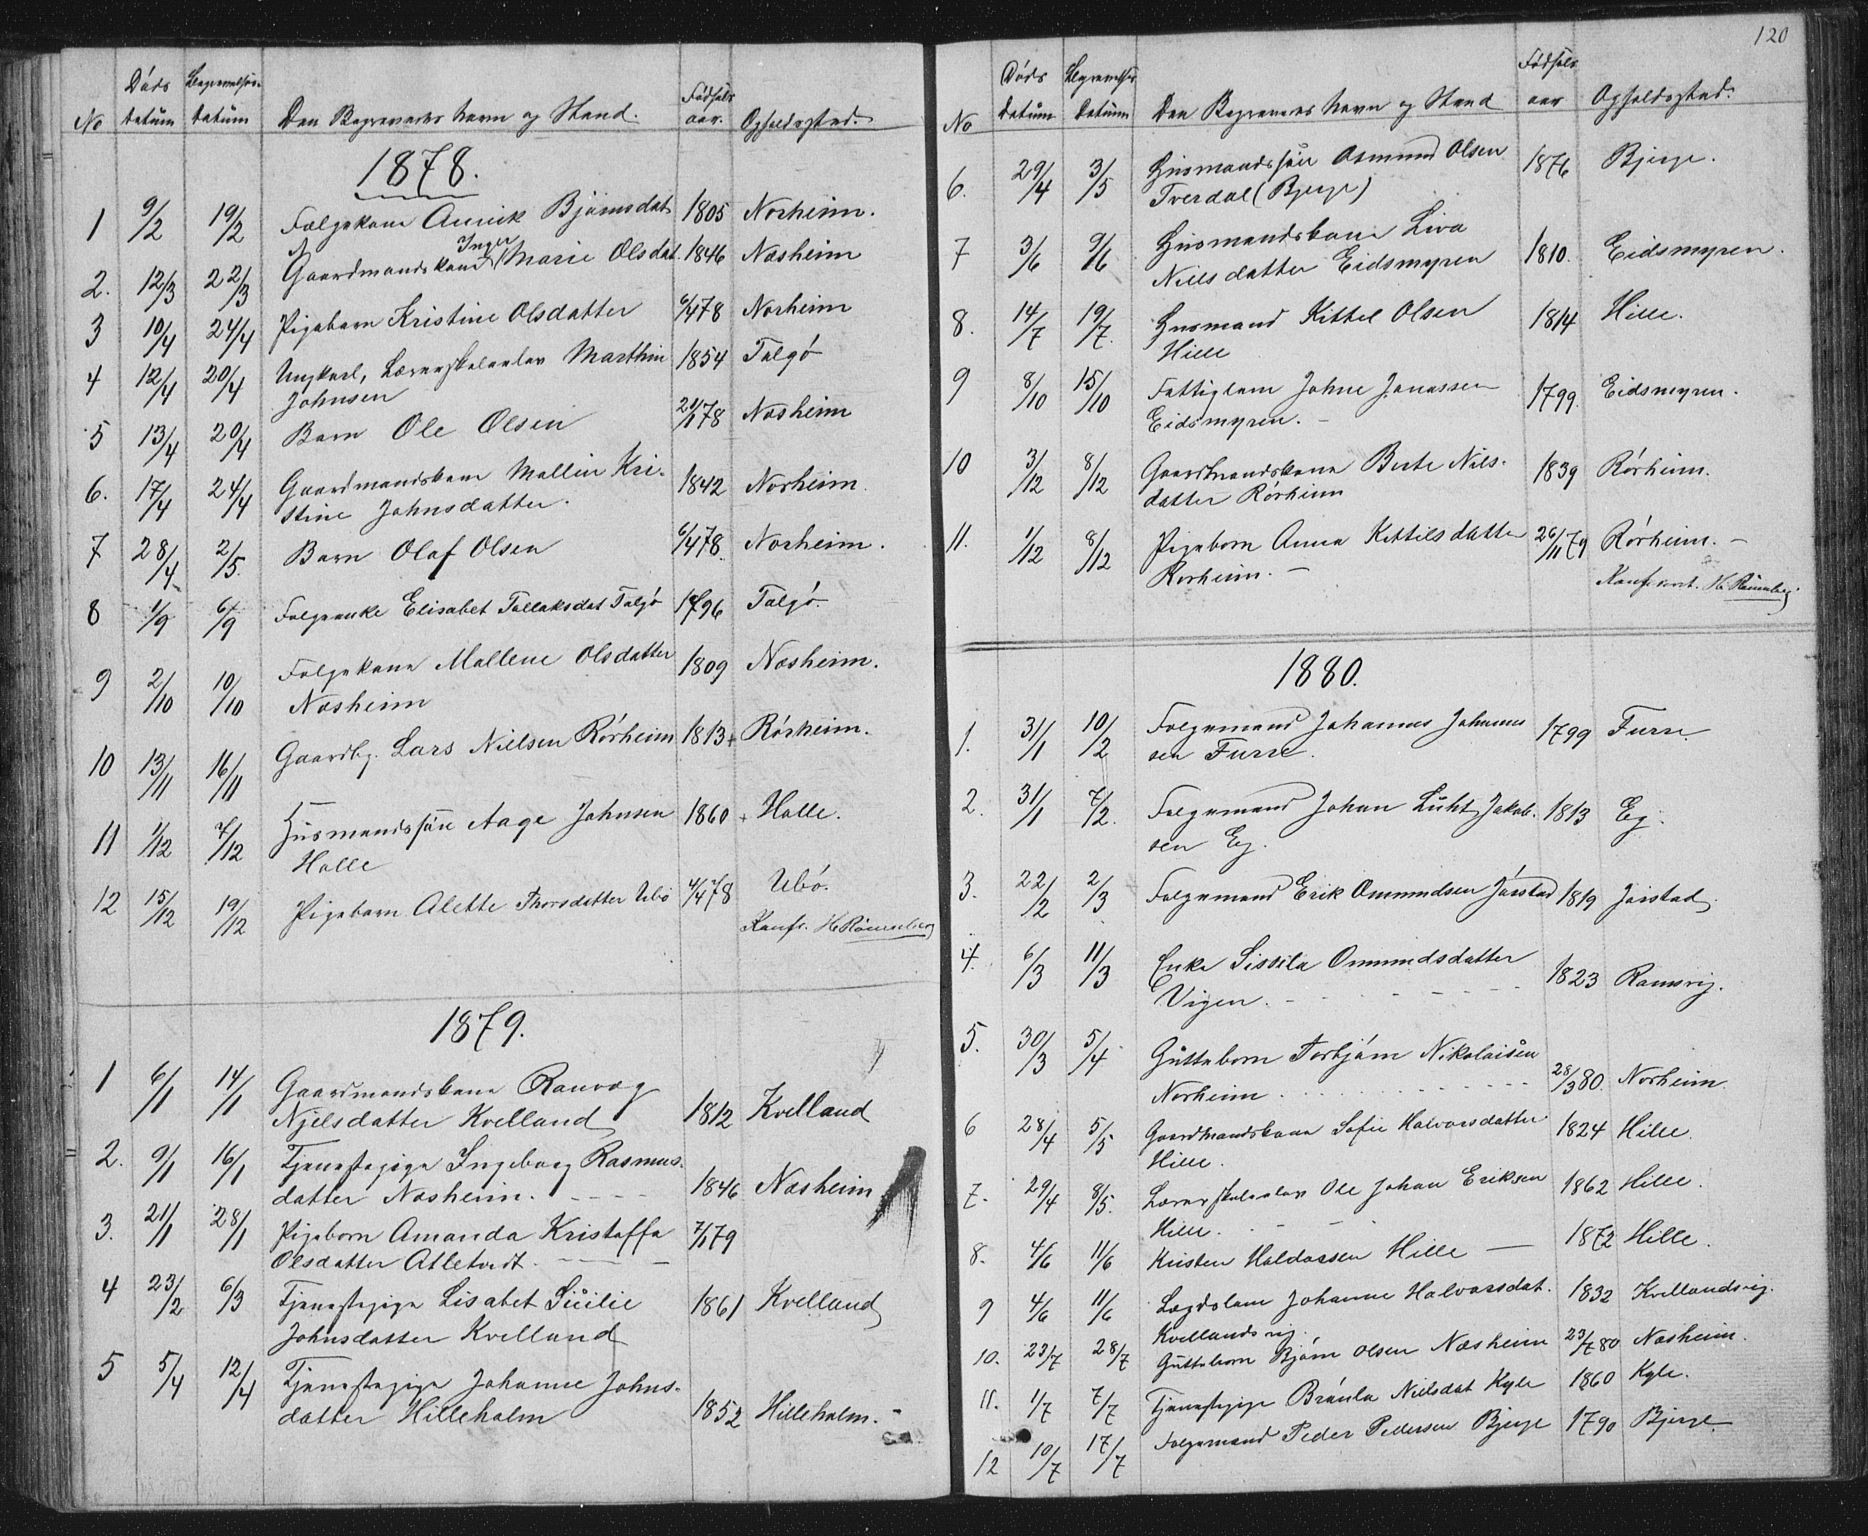 No Døds datum Begravelses- datum Den Begravedes Navn og Stand. Fødsels aar. Opholdssted.
1878.
1 9/2 19/2 Følgekone Annik Bjørnsdat 1805 Norheim.
2. 12/3 22/3 Gaardmandskone Inger Marie Olsdat. 1846 Næsheim
3 10/4 24/4 Pigebarn Kristine Olsdatter 6/4 78 Norheim
4 12/4 20/4 Ungkarl, Lærerskoleelev Marthin 1854 Talgø
Johnsen
5 13/4 20/4 Barn Ole Olsen 21/1 78 Næsheim
6. 17/4 24/4 Gaardmandskone Mallin Kri- 1842 Norheim.
stine Johnsdatter.
7 28/4 2/5. Barn Olaf Olsen 6/4 78. Norheim.
8 1/9 6/9 Følgeenke Elisabet Tallaksdat Talgø 1796 Talgø.
9 2/10 10/10 Følgekone Mallene Olsdatter 1809 Næsheim.
Næsheim
10 13/11 16/11 Gaardbr. Lars Nielsen Rørheim 1813+ Rørheim.
11 1/12 7/12 Husmandssøn Aage Johnsen 1860 + Halle.
Halle
12 15/12 19/12 Pigebarn Alette Thorsdatter Ubø 4/4 78 Ubø.
Konfr. H. Rønneberg
1879.
1 6/1 14/1 Gaardmandskone Ranvog
Njelsdatter Kvelland 1812 Kvelland
2. 9/1 16/1 Tjenestepige Ingeborg Rasmus-
datter Næsheim. 1846 Næsheim
3. 21/1 28/1 Pigebarn Amanda Kristoffa 7/1 79
Olsdatter Atletvedt.
4 23/2 6/3 Tjenestepige Lisabet Sicilie 1861 Kvelland
Johnsdatter Kvelland
5 5/4 12/4 Tjenestepige Johanne Johns-
datter Hilleholm 1852 Hilleholm.
120
No Døds datum Begravelses Datum Den Begravedes Navn og Stand Fødsels aar Opholdssted.
6. 29/4 3/5 Husmandssøn Asmund Olsen 1876 Bjerge.
Tverdal (Bjerge)
7 3/6 9/6 Husmandskone Liva
Nielsdatter Eidsmyren 1810. Eidsmyren.
8. 14/7 19/7. Husmand Kittel Olsen 1814 Hille.
Hille
9 8/10 15/10 Fattiglem Johne Jonassen 1799. Eidsmyren.
Eidsmyren.
10 3/12 8/12 Gaardmandskone Berte Niels- 1839 Rørheim.
datter Rørheim
11. 1/12 8/12 Pigebarn Anna Kittelsdatter 26/11 79 Rørheim.
Rørheim.
Konfereret. H. Rønneberg
1880.
1. 31/1 10/2 Følgemand Johannes Johannes 1799 Furre.
sen Furre.
2. 31/1 7/2. Følgemand Johan Luht Jakob- 1813 Eg.
sen Eg.
3. 22/2 2/3 Følgemand Erik Ommundsen Jøistad 1819 Jøistad.
4. 6/3 11/3 Enke Sissila Ommundsdatter 1823 Ramsvig.
Vigen.
5. 30/3 5/4 Guttebarn Torbjørn Nikolaisen
Norheim 28/3 80. Norheim.
6 28/4 5/5 Gaardmandskone Sofie Halvorsdatter 1824 Hille.
Hille.
7. 29/4 8/5. Lærerskoleelev Ole Johan Eriksen 1862 Hille.
Hille.
8. 4/6 11/6 Kristen Haldorsen Hille 1872 Hille.
9 4/6 11/6 Lægdslem Johanne Halvorsdat. 1832 Kvellandsvig.
Kvellandsvig.
10. 23/7 28/7 Guttebarn Bjørn Olsen Næsheim 23/7 80 Næsheim.
11. 1/7 7/7 Tjenestepige Brønla Nielsdat Kyle 1860 Kyle.
12 10/7 17/7 Følgemand Peder Pedersen Bjerge 1790 Bjerge.